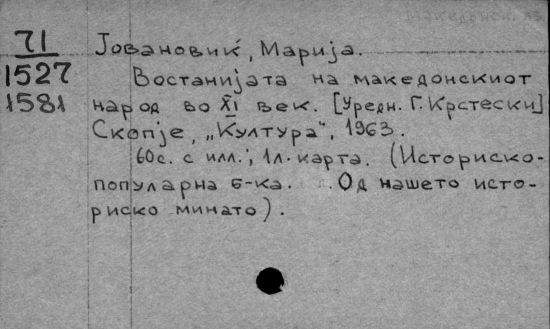 71 Јовановиќ, Марија.
1527 Востанијата на македонскиот
1581 народ во XI век. [Уредн. Г. Крстески]
Скопје, „Култура“, 1963.
60с. с илл.; 1л. карта. (Историско-
популарна б-ка. Од нашето исто-
риско минато).